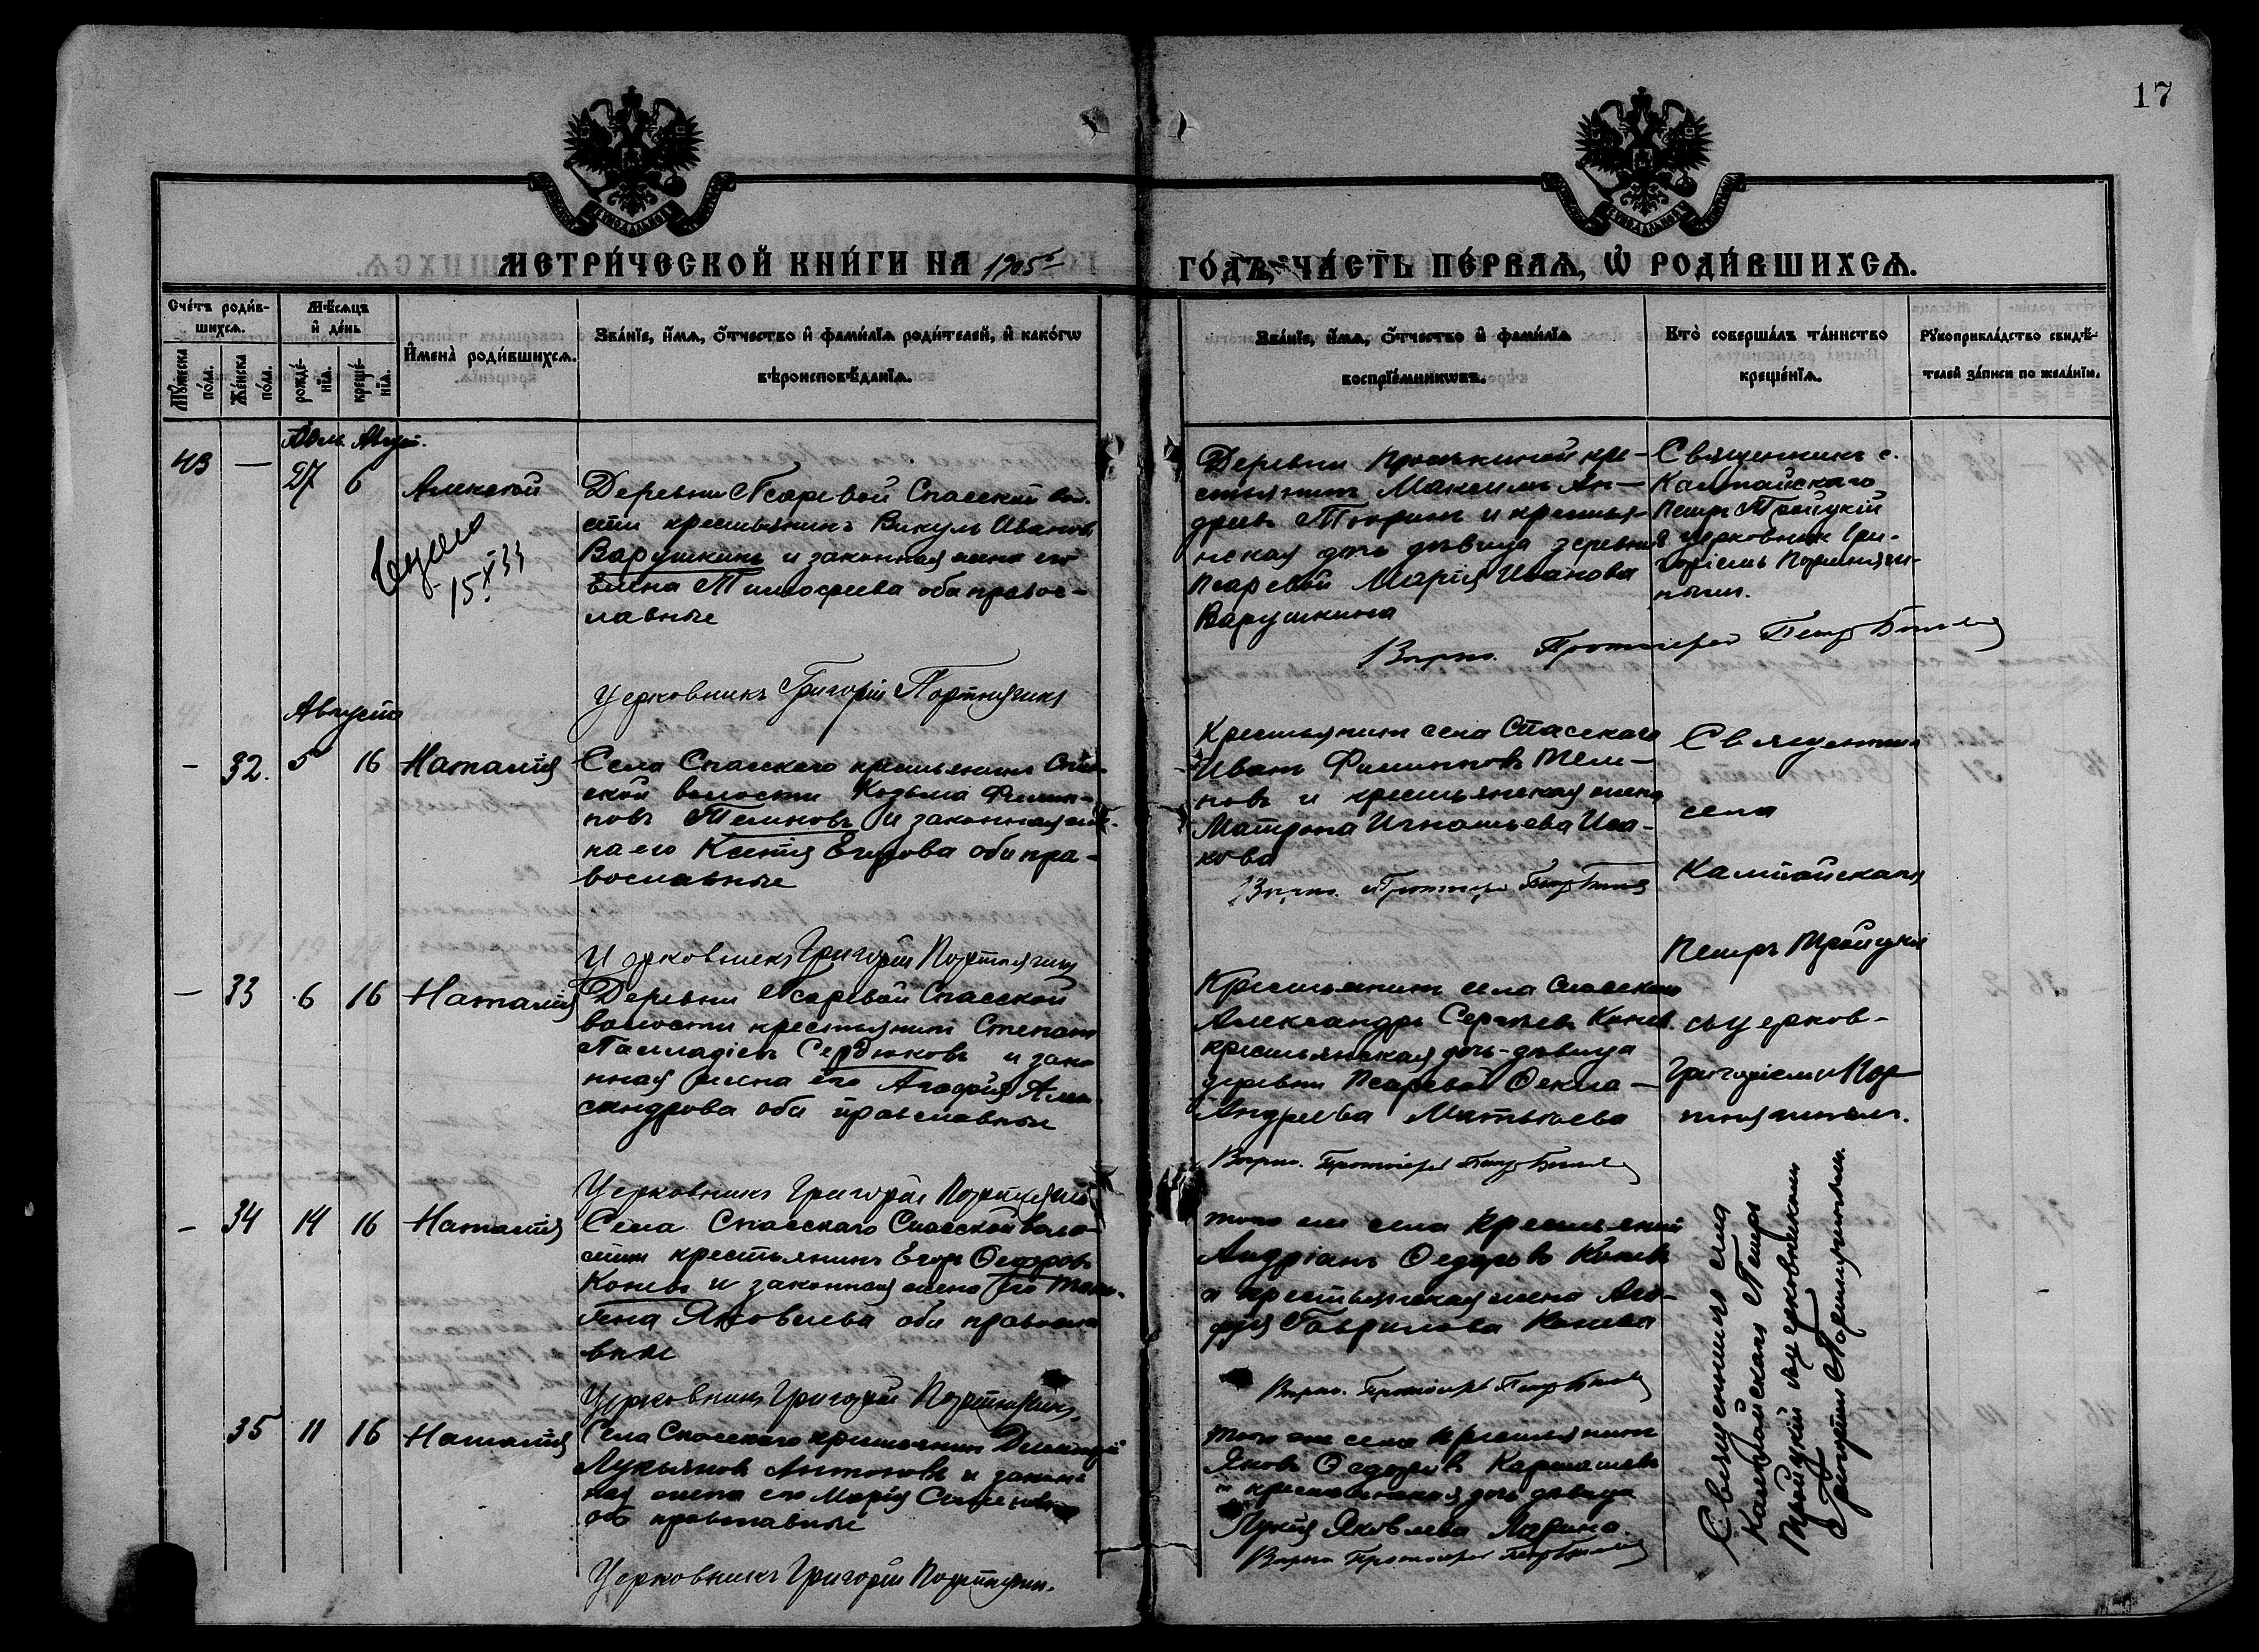 17
МЕТРИ́ЧЕСКОЙ КНИ́ГИ НА 1905
ГО́ДЪ, ЧА́СТЬ ПЕ́РВАѦ, Ѡ҆ РОДИ́ВШИХСѦ.
Сче́тъ роди́в-
шихсѧ.
Мѣ́сѧцъ
и҆ де́нь
Мꙋ́жеска
по́ла.
Же́нска
по́ла.
рожде́-
нїѧ.
креще́-
нїѧ.
И҆мена̀ роди́вшихсѧ.
Зва́нїе, и҆́мѧ, ѻ҆́тчество и҆ фами́лїѧ роди́телей, и҆ како́гѡ
вѣроисповѣ́данїѧ.
Зва́нїе, и҆́мѧ, ѻ҆́тчество и҆ фами́лїѧ
воспрїе́мникѡвъ.
Кто̀ соверша́лъ та́инство
креще́нїѧ.
Рꙋкоприкла́дство свидѣ́-
телей за́писи по жела́нїю.
43 —
Авгус.
27 6
Алексѣй
15 X 33
Деревни Псаревой Спасской вол.
сти крестьянинъ Викулъ Ивановъ
Варушкинъ и законная жена его
Елена Тимофеева оба правос-
лавные
Церковникъ Григорій Портнягинъ
кре-
стьянинъ Максимъ Ан-
дреевъ и крестья-
нская дочь дѣвица деревни
Псаревой Марія Иванова
Варушкина
Священникъ с.
Калтайскаго
Петръ Троицкій
церковник Гри-
горіемъ Портняги-
нымъ.
Вѣрно. Протоіерей Петръ
Августа
— 32. 5 16 Наталія
Села Спасскаго крестьянинъ Спас-
ской волости Козьма Филип-
повъ Телиновъ и законная же-
на его Ксенія Егорова оба пра-
вославные
Церковникъ Григорій Портнягинъ
Крестьянинъ села Спасскаго
Иванъ Филипповъ Тели-
новъ и крестьянская жена
Матрона Игнатьева Иса-
кова
Вѣрно. Протоіерей Петръ
Священникъ
села
Калтайскаго
Петръ Троицкій
съ церков-
Григоріемъ Пор-
тнягинымъ.
— 33 6 16 Наталія
Деревни Псаревой Спасской
волости крестьянинъ Степанъ
Палладіевъ Сердюковъ и зако
нная жена его Агафія Алек-
сандрова оба православные
Церковникъ Григорій Портнягинъ
Крестьянинъ села Спасскаго
Александръ Сергѣевъ Коневъ.
крестьянская дочь-дѣвица
деревни Псаревой Ѳекла
Андреева Матвѣева
Вѣрно. Протоіерей Петръ
— 34 14 16 Наталія
Села Спасскаго Спасской воло-
сти крестьянинъ Егоръ Ѳедоровъ
Коневъ и законная жена его Тать-
яна Яковлева оба правосла
вные
Церковникъ Григорій Портнягинъ
того же села крестьянинъ
Андріанъ Ѳедоровъ Коневъ
и крестьянская жена Ага-
фія Гаврилова Конева
Вѣрно. Протоіерей Петръ
Священникъ села
Калтайскаго Петръ
Троицкій съ церковникомъ
Григоріемъ Портнягинымъ.
35 11 16 Наталія
Села Спасскаго крестьянинъ Димитрій
Лукьяновъ Антоновъ и закон
ная жена его Марія Семеновна
оба православные
Церковникъ Григорій Портнягин.
того же села крестьянинъ
Яковъ Ѳедоровъ Карташевъ
и крестьянская дочь дѣвица
Лукія Яковлева Ларина.
Вѣрно Протоіерей Петръ